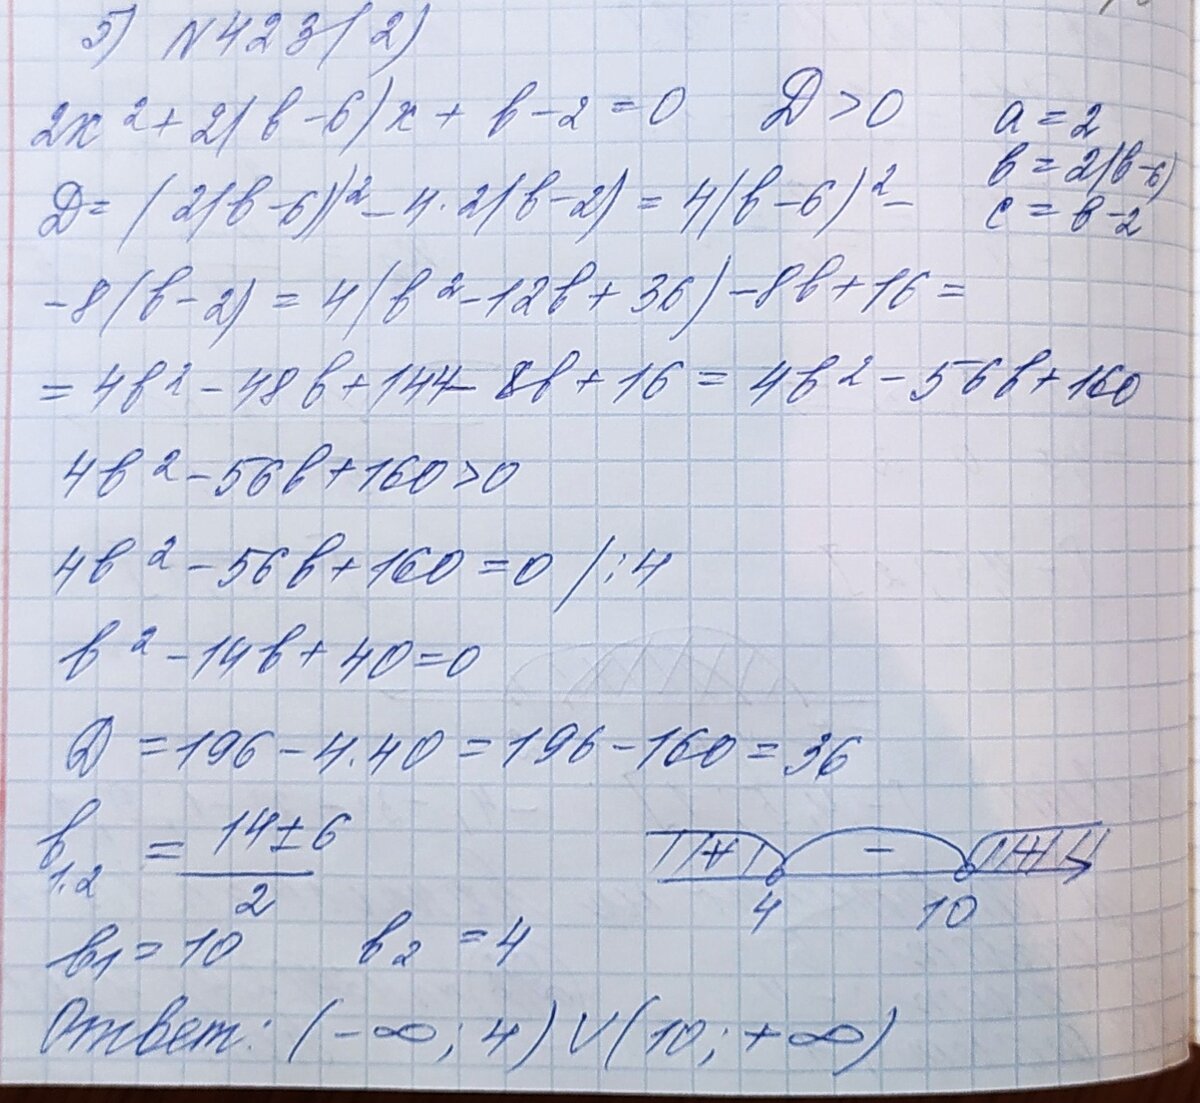 5) N423(2)
2x² + 2(b-6)x + b-2 = 0 D > 0 a = 2
b = 2(b-6)
c = b-2
D = (2(b-6))² - 4·2(b-2) = 4(b-6)² -
-8(b-2) = 4(b² - 12b + 36) - 8b + 16 =
= 4b² - 48b + 144 - 8b + 16 = 4b² - 56b + 160
4b² - 56b + 160 > 0
4b² - 56b + 160 = 0 /:4
b² - 14b + 40 = 0
D = 196 - 4·40 = 196 - 160 = 36
b₁.₂ = (14 ± 6)/2
+ - +
4 10
b₁ = 10 b₂ = 4
Ответ: (-∞; 4) ∪ (10; +∞)